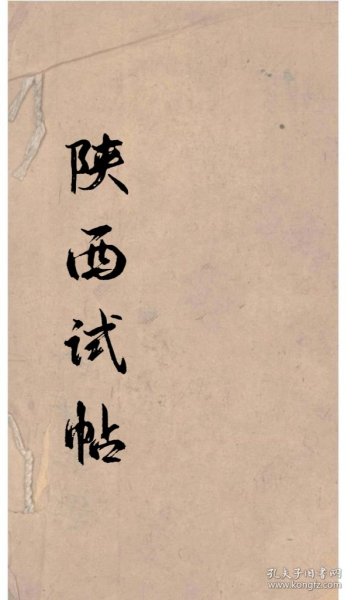 陕西试帖
孔夫子旧书网
www.kongfz.com